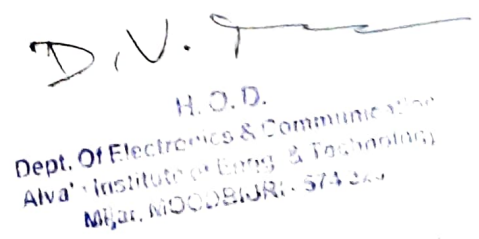 D.V.
H. O. D.
Dept. Of Electronics & Communication
Alva's Institute of Engg. & Technology
Mijar, MOODBIDRI - 574